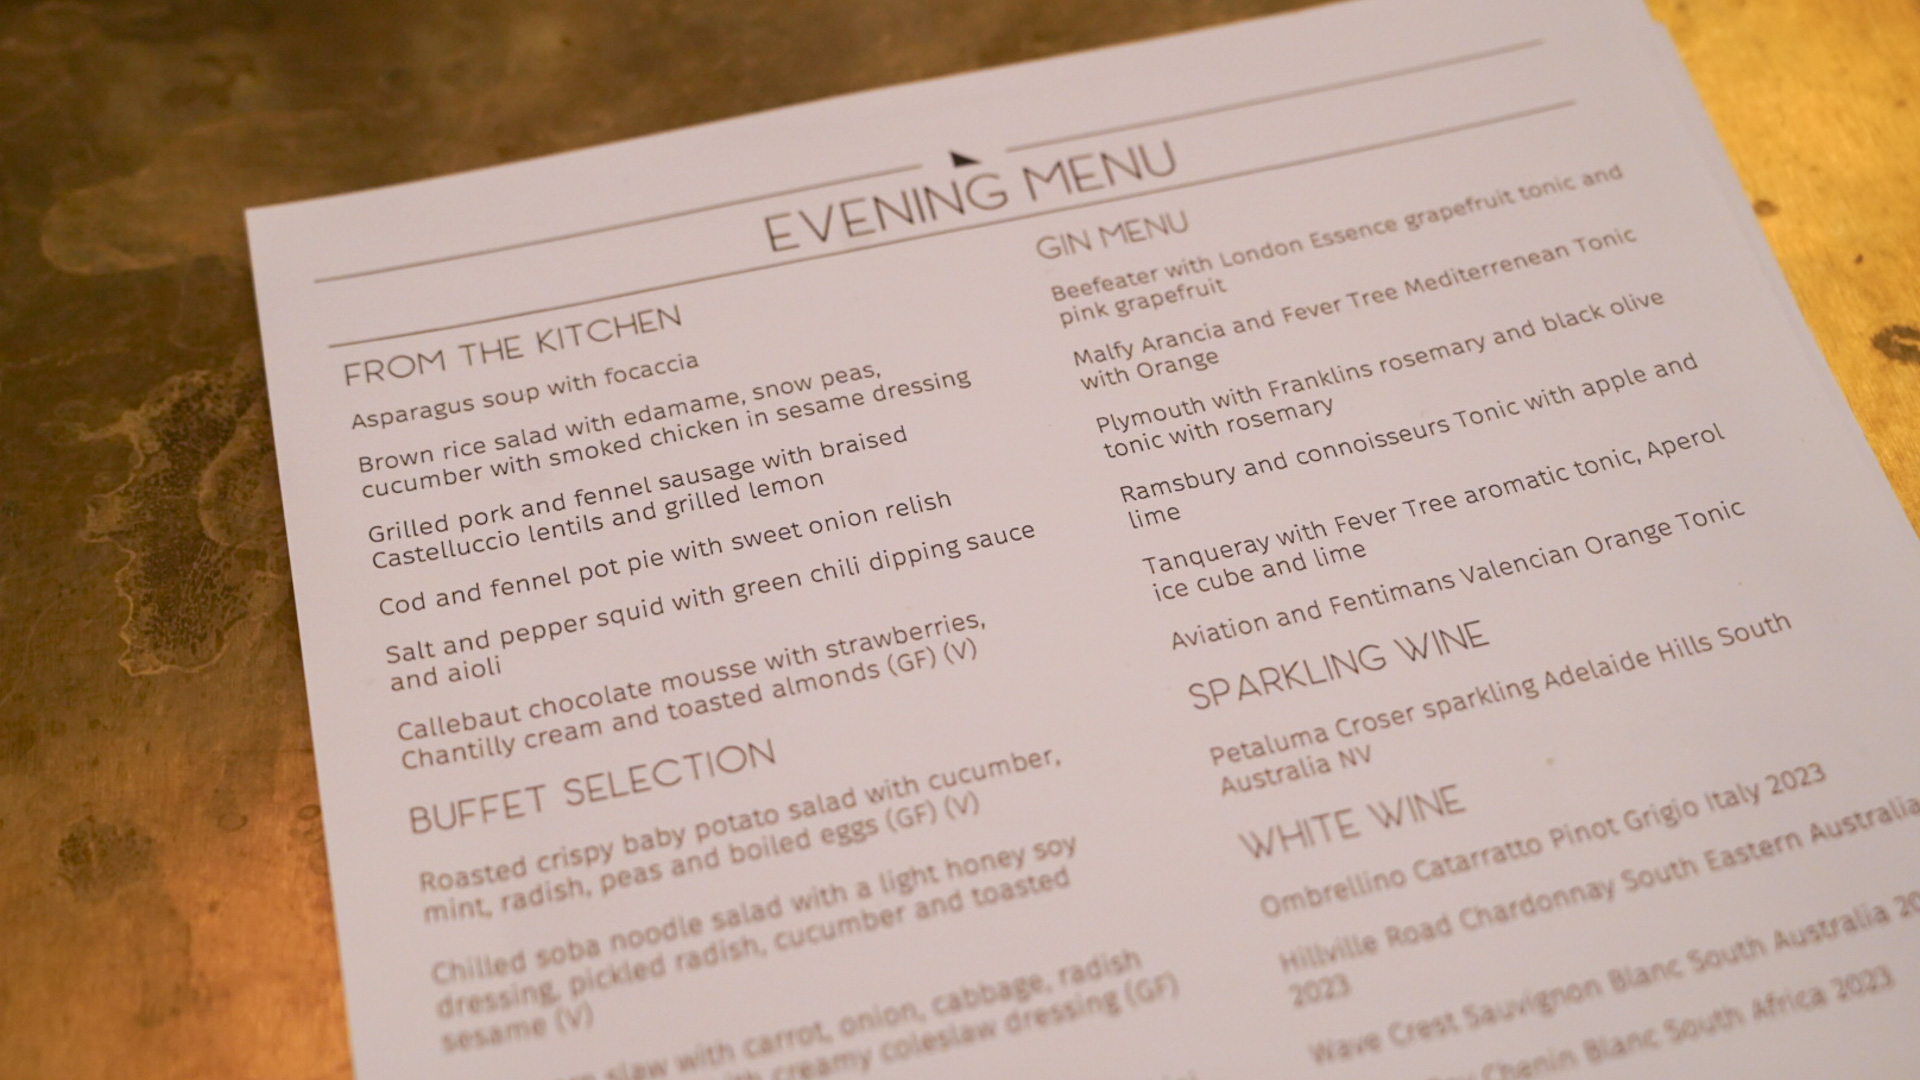 EVENING MENU
FROM THE KITCHEN
Asparagus soup with focaccia
Brown rice salad with edamame, snow peas,
cucumber with smoked chicken in sesame dressing
Grilled pork and fennel sausage with braised
Castelluccio lentils and grilled lemon
Cod and fennel pot pie with sweet onion relish
Salt and pepper squid with green chili dipping sauce
and aioli
Callebaut chocolate mousse with strawberries,
Chantilly cream and toasted almonds (GF) (V)
BUFFET SELECTION
Roasted crispy baby potato salad with cucumber,
mint, radish, peas and boiled eggs (GF) (V)
Chilled soba noodle salad with a light honey soy
dressing, pickled radish, cucumber and toasted
sesame (V)
slaw with carrot, onion, cabbage, radish
creamy coleslaw dressing (GF)
GIN MENU
Beefeater with London Essence grapefruit tonic and
pink grapefruit
Malfy Arancia and Fever Tree Mediterrenean Tonic
with Orange
Plymouth with Franklins rosemary and black olive
tonic with rosemary
Ramsbury and connoisseurs Tonic with apple and
lime
Tanqueray with Fever Tree aromatic tonic, Aperol
ice cube and lime
Aviation and Fentimans Valencian Orange Tonic
SPARKLING WINE
Petaluma Croser sparkling Adelaide Hills South
Australia NV
WHITE WINE
Ombrellino Catarratto Pinot Grigio Italy 2023
Hillville Road Chardonnay South Eastern Australia
2023
Wave Crest Sauvignon Blanc South Australia
Chenin Blanc South Africa 2023